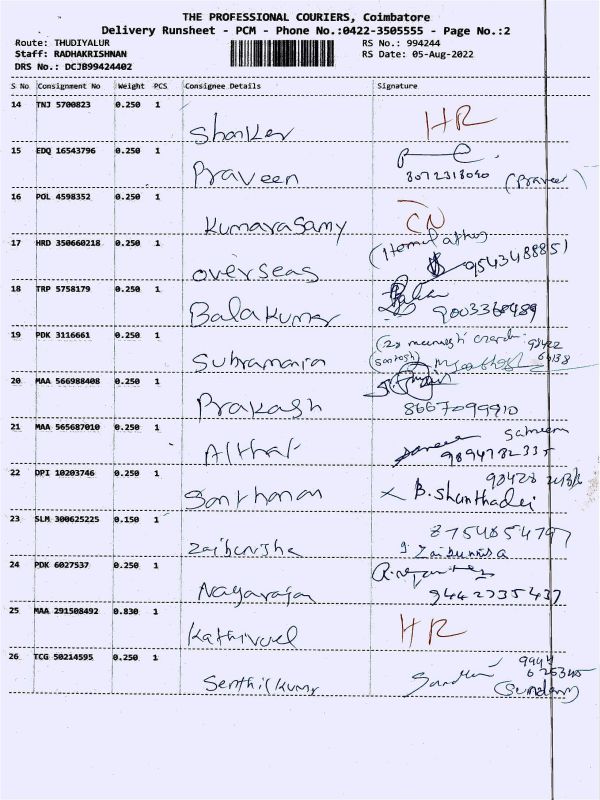 THE PROFESSIONAL COURIERS, Coimbatore
Delivery Runsheet - PCM - Phone No.:0422-3505555 - Page No.:2
Route: THUDIYALUR RS No.: 994244
Staff: RADHAKRISHNAN RS Date: 05-Aug-2022
DRS No.: DCJB99424402
S No Consignment No Weight PCS Consignee Details Signature
14 TNJ 5700823 0.250 1
Shanker HR
15 EDQ 16543796 0.250 1
Praveen 8072318090 (Praveen)
16 POL 4598352 0.250 1
Kumarasamy CN
17 HRD 350660218 0.250 1
overseas 9543488851
18 TRP 5758179 0.250 1
Balakumar 9003360489
19 PDK 3116661 0.250 1
Subramania (Santosh)
20 MAA 566988408 0.250 1
Prakash 8667099910
21 MAA 565687010 0.250 1
Althaf Sameem
9894782335
22 DPI 10203746 0.250 1
Santhanan B. Shanthadei
23 SLM 300625225 0.150 1
8754854797
Zaibunisha Zaibunnisa
24 PDK 6027537 0.250 1
Nagarajan 9442735437
25 MAA 291508492 0.830 1
Kathirvel HR
26 TCG 50214595 0.250 1
9944
Senthilkumar (Sundaram)